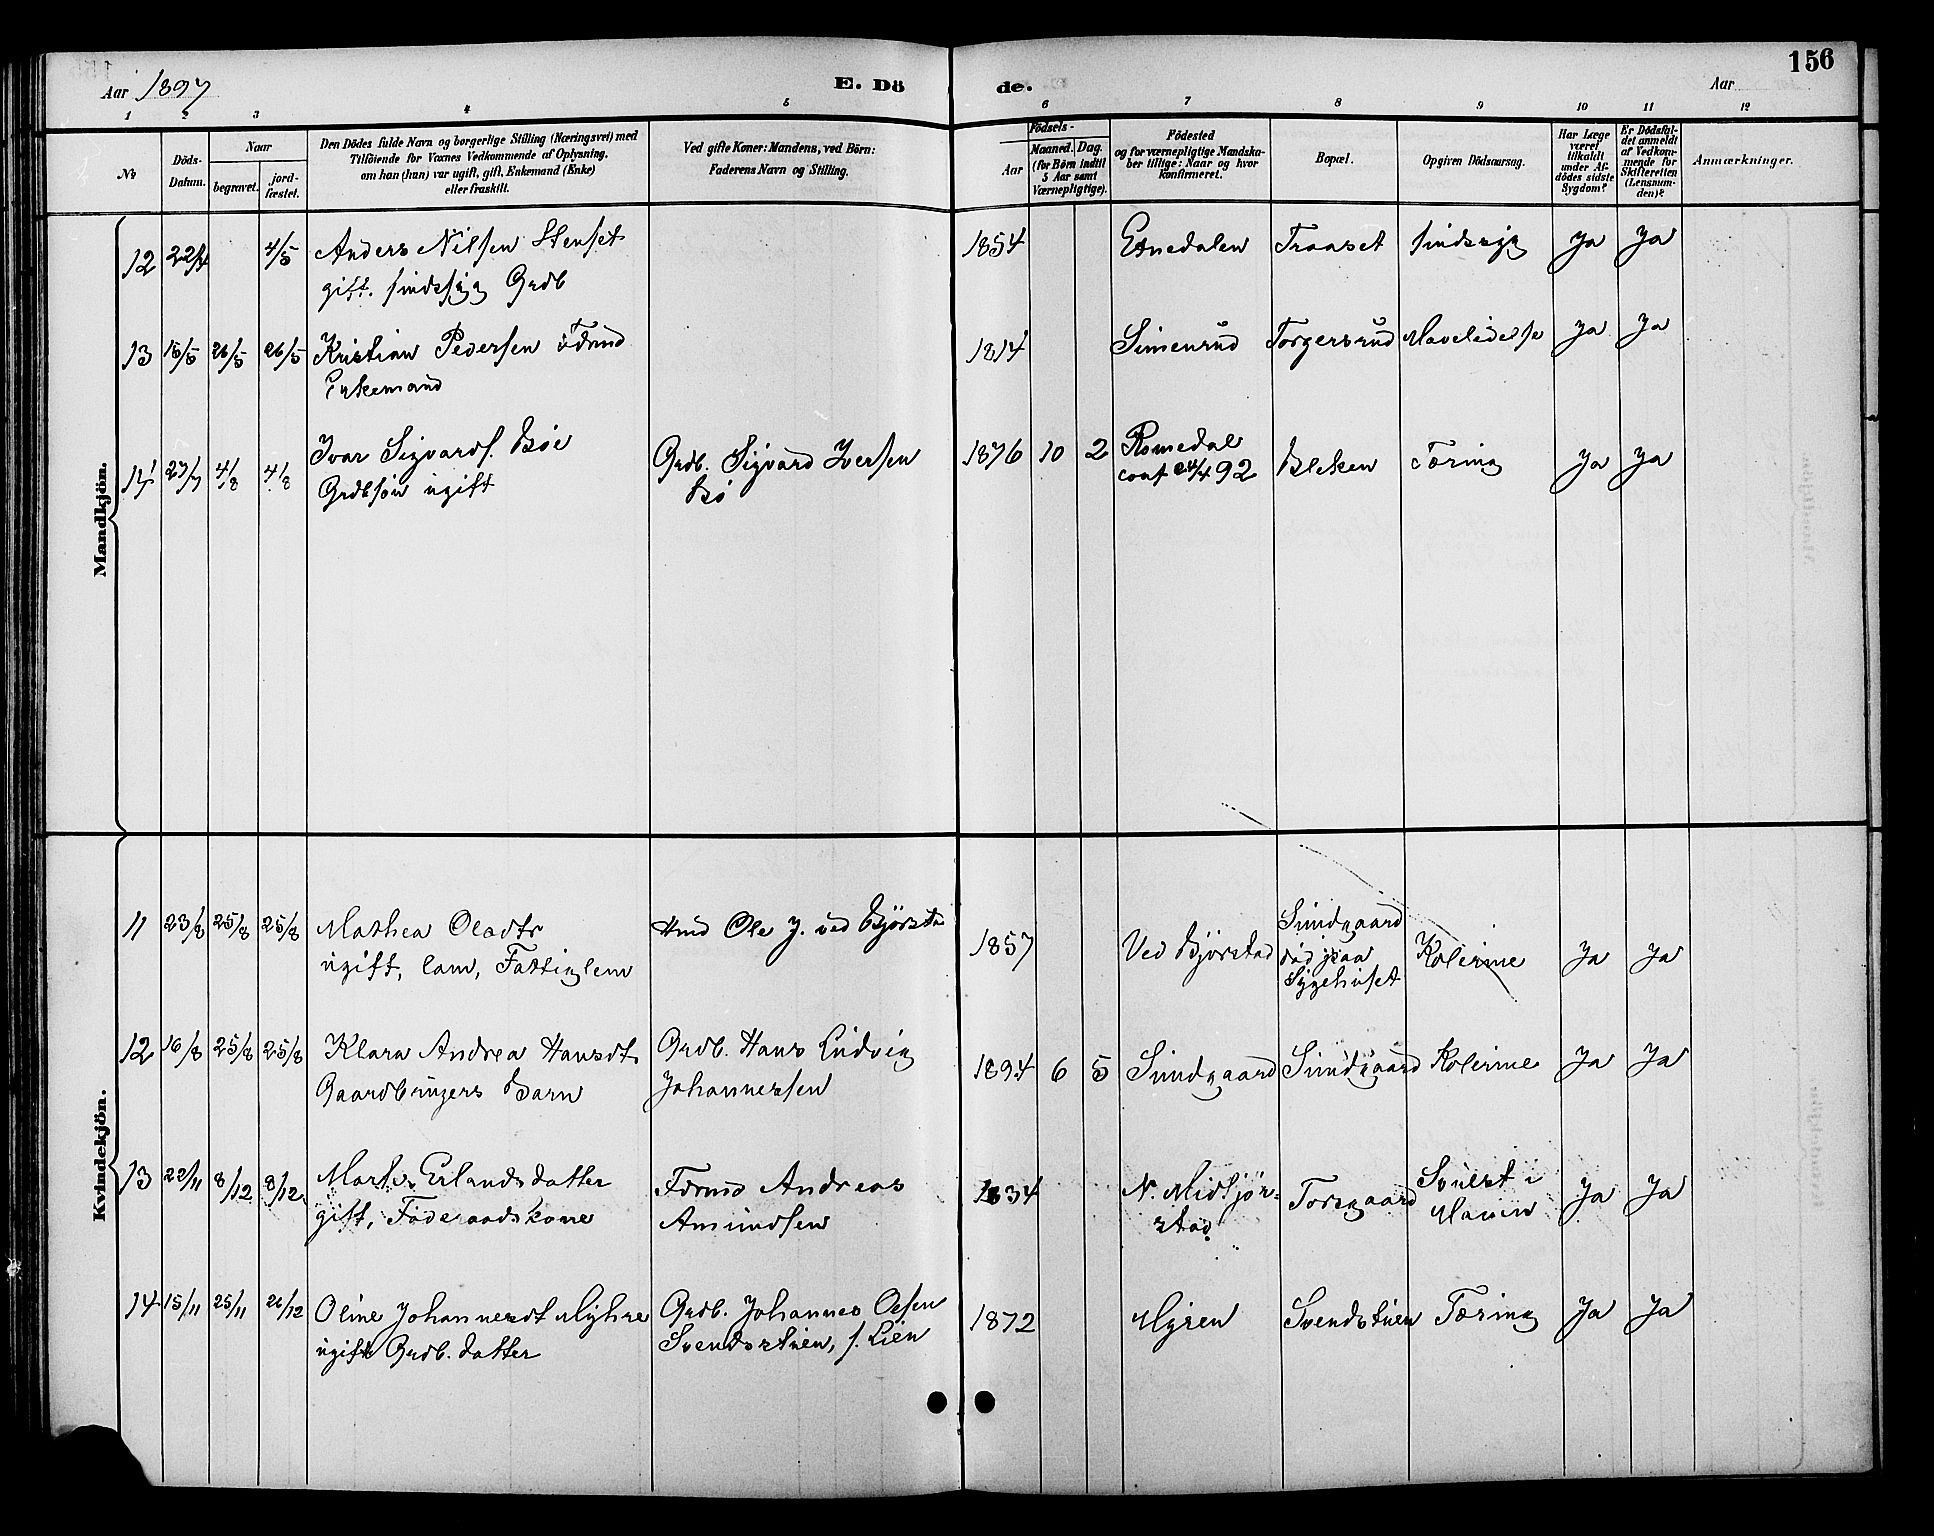 156
Aar 1897
E. Dö
de.
Aar
1 2 3 4 5 6 7 8 9 10 11 12
No
Döds-
Datum.
Naar
begravet.
jord-
fæstet.
Den Dödes fulde Navn og borgerlige Stilling (Næringsvei) med
Tilföiende for Voxnes Vedkommende af Oplysning,
om han (hun) var ugift, gift, Enkemand (Enke)
eller fraskilt.
Ved gifte Koner: Mandens, ved Börn:
Faderens Navn og Stilling.
Födsels-
Aar
Maaned. Dag.
(for Börn indtil
5 Aar samt
Værnepligtige).
Födested
og for værnepligtige Mandska-
ber tillige: Naar og hvor
konfirmeret.
Bopæl.
Opgiven Dödsaarsag.
Har Læge
været
tilkaldt
under Af-
dödes sidste
Sygdom?
Er Dödsfal-
det anmeldt
af Vedkom-
mende for
Skifteretten
(Lensman-
den)?
Anmærkninger.
Mandkjön.
12 22/4 4/5 Anders Nilsen Stenset 1854 Etnedalen Traaset sindssyg Ja Ja
gift. sindssyg Grdb
13 15/5 26/5 26/5 Kristian Pedersen 1814 Simenrud Torgersrud Mavelidelse Ja Ja
Enkemand
14 27/7 4/8 4/8 Ivar Sigvards. Bøe Grdb. Sigvard Iversen 1876 10 2 Romedal Bleken Tæring Ja Ja
Grdbsøn ugift Bø conf 92
Kvindekjön.
11 23/8 25/8 25/8 Mathea Olsdtr Hmd Ole J. ved Bjørstad 1857 Ved Bjørstad Sundgaard Kolerine Ja Ja
ugift, lam, Fattiglem død paa
Sygehuset
12 16/8 25/8 25/8 Klara Andrea Hansdt Grdb. Hans Ludvig 1894 6 5 Sundgaard Sundgaard Kolerine Ja Ja
Gaardbrugers Barn Johannessen
13 22/11 8/12 8/12 Erlandsdatter Andreas 1834 N. Midtjør- Torsgaard Svulst i Ja Ja
gift, Føderaadskone Amundsen stad Maven
14 15/11 25/11 26/12 Oline Johannesdt Myhre Grdb. Johannes Olsen 1872 Myren Svendstuen Tæring Ja Ja
ugift Grdb. datter Svendstuen, f. Lien